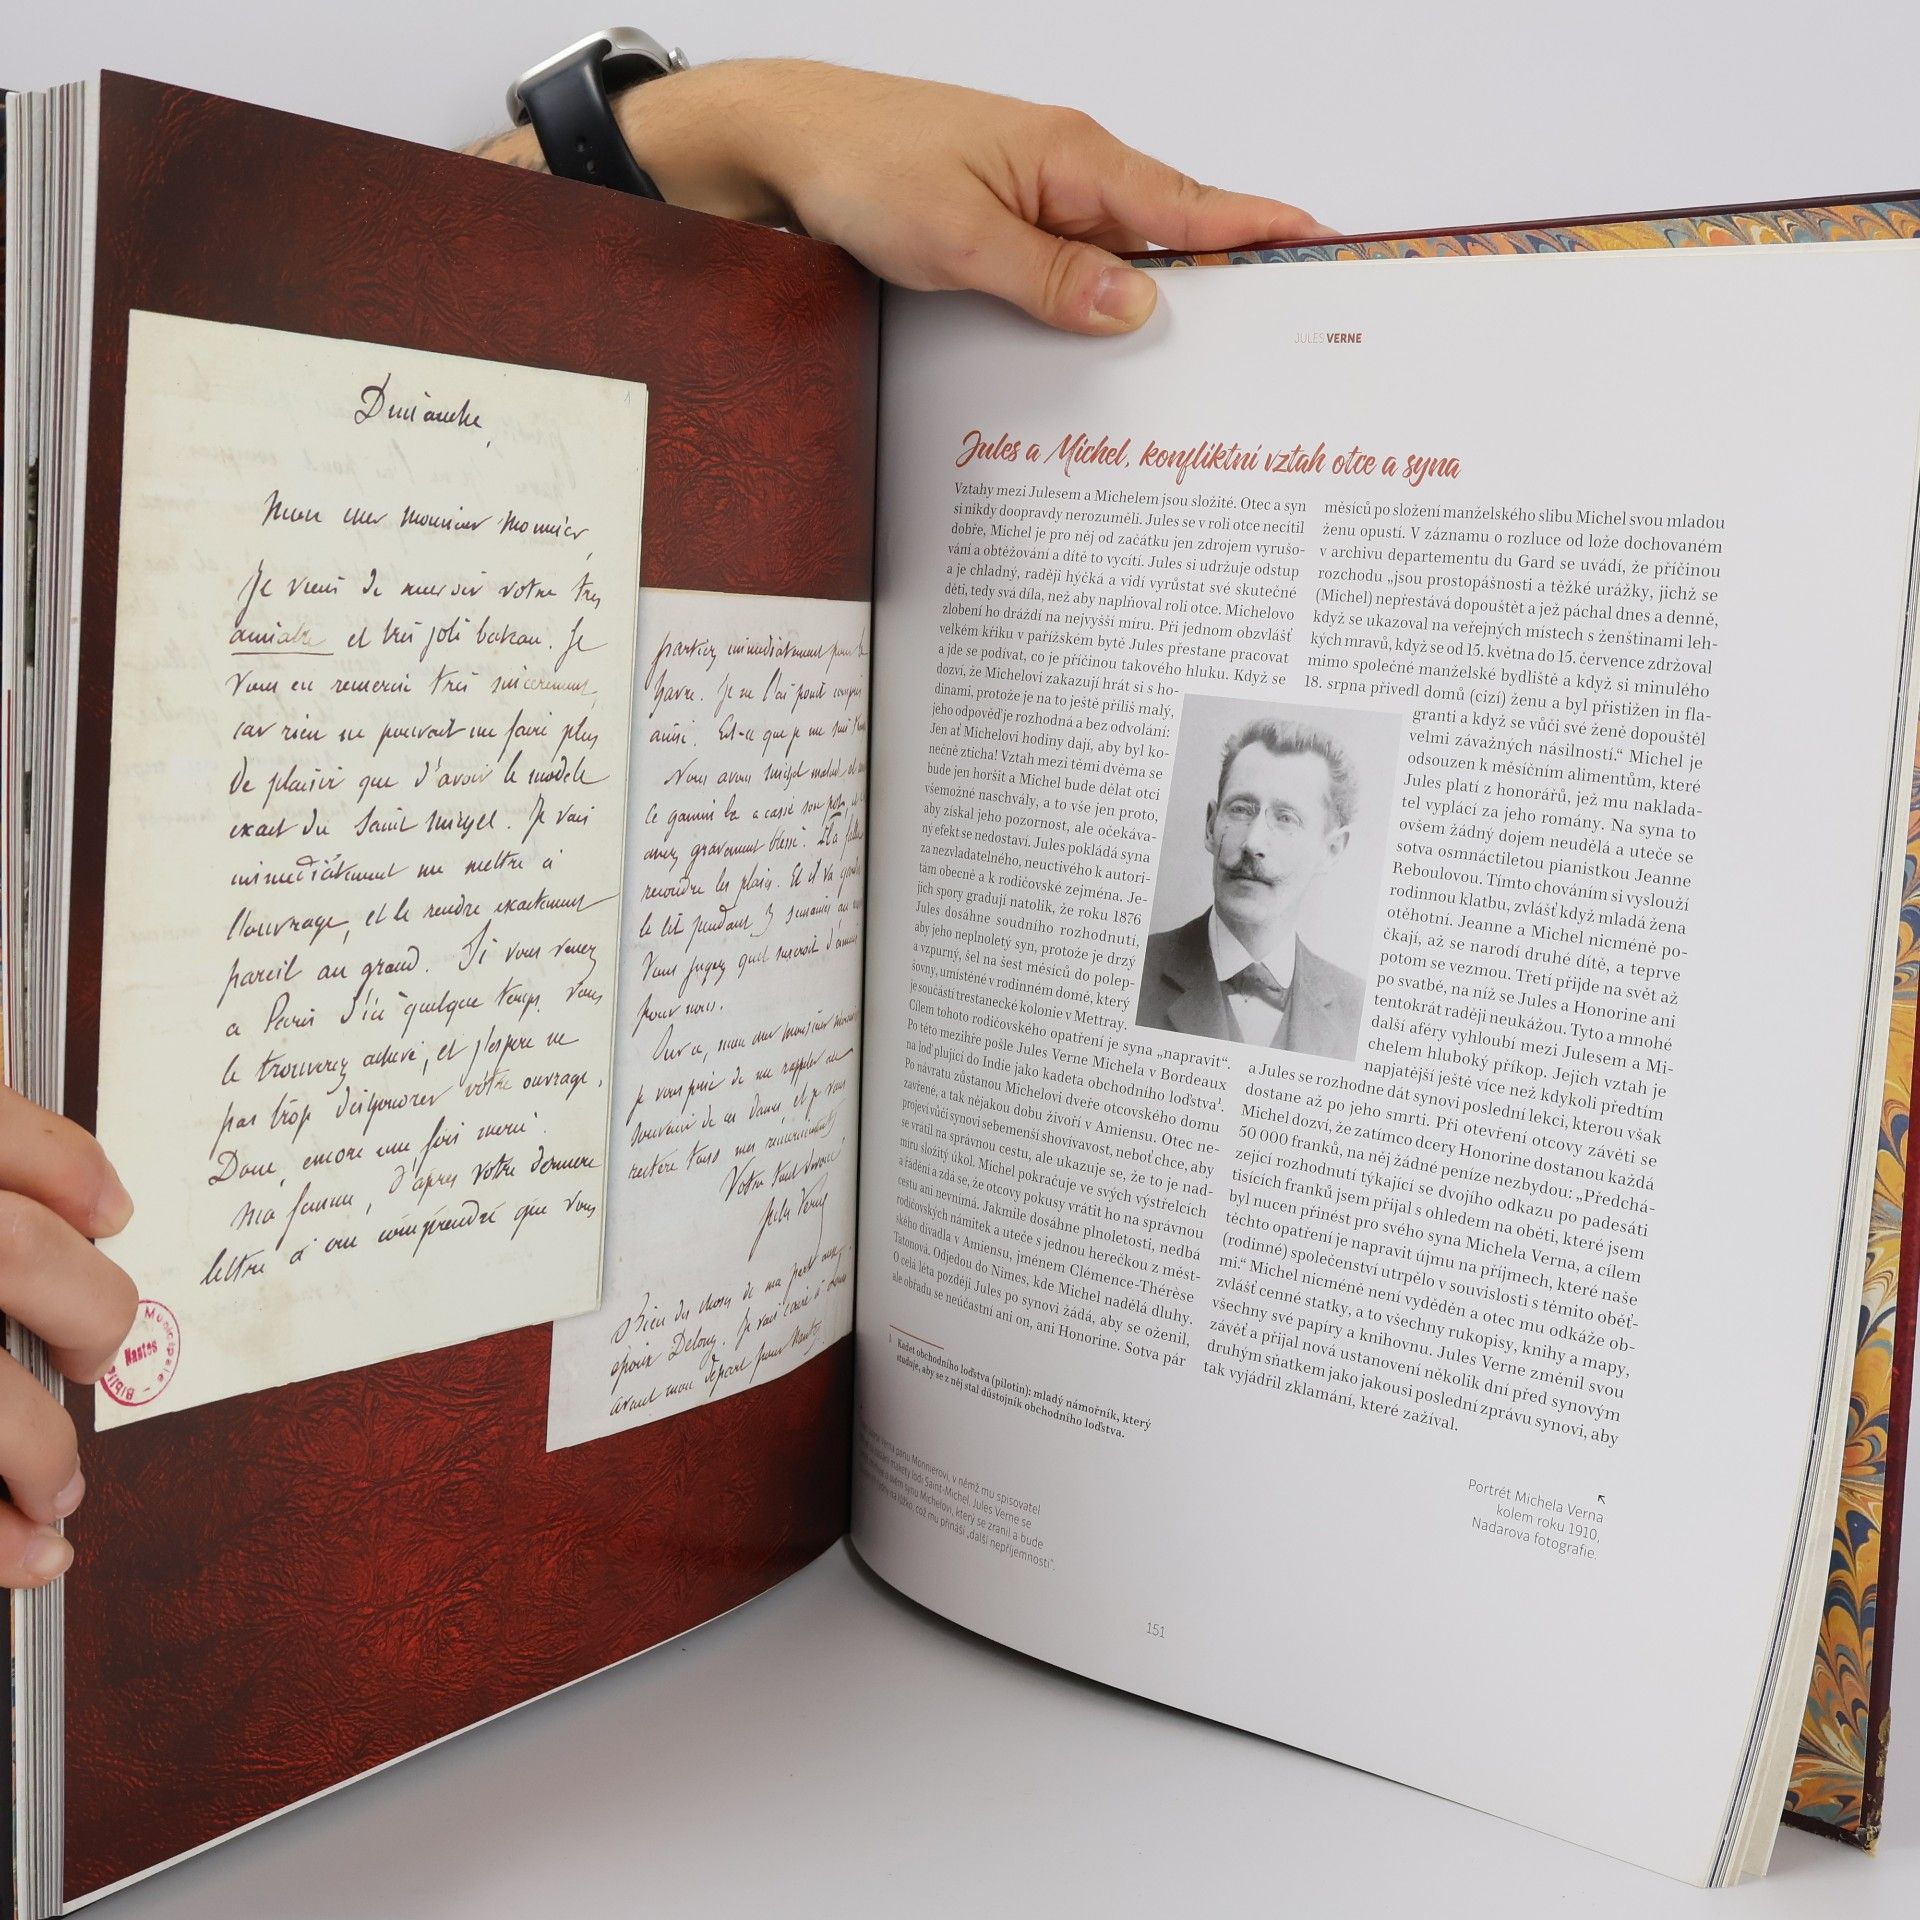 Dimanche,
1
Mon cher Monsieur Monnier,
Je viens de recevoir votre très
aimable et très joli bateau. Je
vous en remercie très sincèrement,
car rien ne pouvait me faire plus
de plaisir que d'avoir le modèle
exact du Saint Michel. Je vais
immédiatement me mettre à
l'ouvrage, et le rendre exactement
pareil au grand. Si vous venez
à Paris d'ici quelque temps, vous
le trouverez achevé, et j'espère ne
pas trop déshonorer votre ouvrage.
Donc, encore une fois merci.
Ma femme, d'après votre dernière
lettre a cru comprendre que vous
Nantes
partiez immédiatement pour le
Havre. Je ne l'ai point compris
ainsi. Est-ce que je me suis
Nous avons Michel malade et
Ce gamin là a cassé son pot, et
assez gravement blessé. Il a fallu
recoudre les plaies. Et il va garder
le lit pendant 3 semaines au
Vous jugez quel surcroît d'ennuis
pour nous.
Sur ce, mon cher Monsieur Monnier
je vous prie de me rappeler au
souvenir de ces dames et je vous
réitère tous mes remerciements
Votre tout dévoué
Jules Verne
Bien des choses de ma part aux
époux Delong. Je vais
avant mon départ pour Nantes.
JULES VERNE
Jules a Michel, konfliktní vztah otce a syna
Vztahy mezi Julesem a Michelem jsou složité. Otec a syn
si nikdy doopravdy nerozuměli. Jules se v roli otce necítil
dobře, Michel je pro něj od začátku jen zdrojem vyrušo-
vání a obtěžování a dítě to vycítí. Jules si udržuje odstup
a je chladný, raději hýčká a vidí vyrůstat své skutečné
děti, tedy svá díla, než aby naplňoval roli otce. Michelovo
zlobení ho dráždí na nejvyšší míru. Při jednom obzvlášť
velkém křiku v pařížském bytě Jules přestane pracovat
a jde se podívat, co je příčinou takového hluku. Když se
dozví, že Michelovi zakazují hrát si s ho-
dinami, protože je na to ještě příliš malý,
jeho odpověď je rozhodná a bez odvolání:
Jen ať Michelovi hodiny dají, aby byl ko-
nečně zticha! Vztah mezi těmi dvěma se
bude jen horšit a Michel bude dělat otci
všemožné naschvály, a to vše jen proto,
aby získal jeho pozornost, ale očekáva-
ný efekt se nedostaví. Jules pokládá syna
za nezvladatelného, neuctivého k autori-
tám obecně a k rodičovské zejména. Je-
jich spory gradují natolik, že roku 1876
Jules dosáhne soudního rozhodnutí,
aby jeho neplnoletý syn, protože je drzý
a vzpurný, šel na šest měsíců do polep-
šovny, umístěné v rodinném domě, který
je součástí trestanecké kolonie v Mettray.
Cílem tohoto rodičovského opatření je syna „napravit“.
Po této mezihře pošle Jules Verne Michela v Bordeaux
na loď plující do Indie jako kadeta obchodního loďstva¹.
Po návratu zůstanou Michelovi dveře otcovského domu
zavřené, a tak nějakou dobu živoří v Amiensu. Otec ne-
projeví vůči synovi sebemenší shovívavost, neboť chce, aby
se vrátil na správnou cestu, ale ukazuje se, že to je nad-
míru složitý úkol. Michel pokračuje ve svých výstřelcích
a řádění a zdá se, že otcovy pokusy vrátit ho na správnou
cestu ani nevnímá. Jakmile dosáhne plnoletosti, nedbá
rodičovských námitek a uteče s jednou herečkou z měst-
ského divadla v Amiensu, jménem Clémence-Thérèse
Tatonová. Odjedou do Nimes, kde Michel nadělá dluhy.
O celá léta později Jules po synovi žádá, aby se oženil,
ale obřadu se neúčastní ani on, ani Honorine. Sotva pár
1 Kadet obchodního loďstva (pilotin): mladý námořník, který
studuje, aby se z něj stal důstojník obchodního loďstva.
měsíců po složení manželského slibu Michel svou mladou
ženu opustí. V záznamu o rozluce od lože dochovaném
v archivu departementu du Gard se uvádí, že příčinou
rozchodu „jsou prostopášnosti a těžké urážky, jichž se
(Michel) nepřestává dopouštět a jež páchal dnes a denně,
když se ukazoval na veřejných místech s ženštinami leh-
kých mravů, když se od 15. května do 15. července zdržoval
mimo společné manželské bydliště a když si minulého
18. srpna přivedl domů (cizí) ženu a byl přistižen in fla-
granti a když se vůči své ženě dopouštěl
velmi závažných násilností.“ Michel je
odsouzen k měsíčním alimentům, které
Jules platí z honorářů, jež mu naklada-
tel vyplácí za jeho romány. Na syna to
ovšem žádný dojem neudělá a uteče se
sotva osmnáctiletou pianistkou Jeanne
Reboulovou. Tímto chováním si vyslouží
rodinnou klatbu, zvlášť když mladá žena
otěhotní. Jeanne a Michel nicméně po-
čkají, až se narodí druhé dítě, a teprve
potom se vezmou. Třetí přijde na svět až
po svatbě, na níž se Jules a Honorine ani
tentokrát raději neukážou. Tyto a mnohé
další aféry vyhloubí mezi Julesem a Mi-
chelem hluboký příkop. Jejich vztah je
napjatější ještě více než kdykoli předtím
a Jules se rozhodne dát synovi poslední lekci, kterou však
dostane až po jeho smrti. Při otevření otcovy závěti se
Michel dozví, že zatímco dcery Honorine dostanou každá
50 000 franků, na něj žádné peníze nezbydou: „Předchá-
zející rozhodnutí týkající se dvojího odkazu po padesáti
tisících franků jsem přijal s ohledem na oběti, které jsem
byl nucen přinést pro svého syna Michela Verna, a cílem
těchto opatření je napravit újmu na příjmech, které naše
(rodinné) společenství utrpělo v souvislosti s těmito oběť-
mi.“ Michel nicméně není vyděděn a otec mu odkáže ob-
zvlášť cenné statky, a to všechny rukopisy, knihy a mapy,
všechny své papíry a knihovnu. Jules Verne změnil svou
závěť a přijal nová ustanovení několik dní před synovým
druhým sňatkem jako jakousi poslední zprávu synovi, aby
tak vyjádřil zklamání, které zažíval.
Verna panu Monnierovi, v němž mu spisovatel
makety lodi Saint-Michel. Jules Verne se
o svém synu Michelovi, který se zranil a bude
na lůžko, což mu přináší „další nepříjemnosti“.
Portrét Michela Verna
kolem roku 1910,
Nadarova fotografie.
151